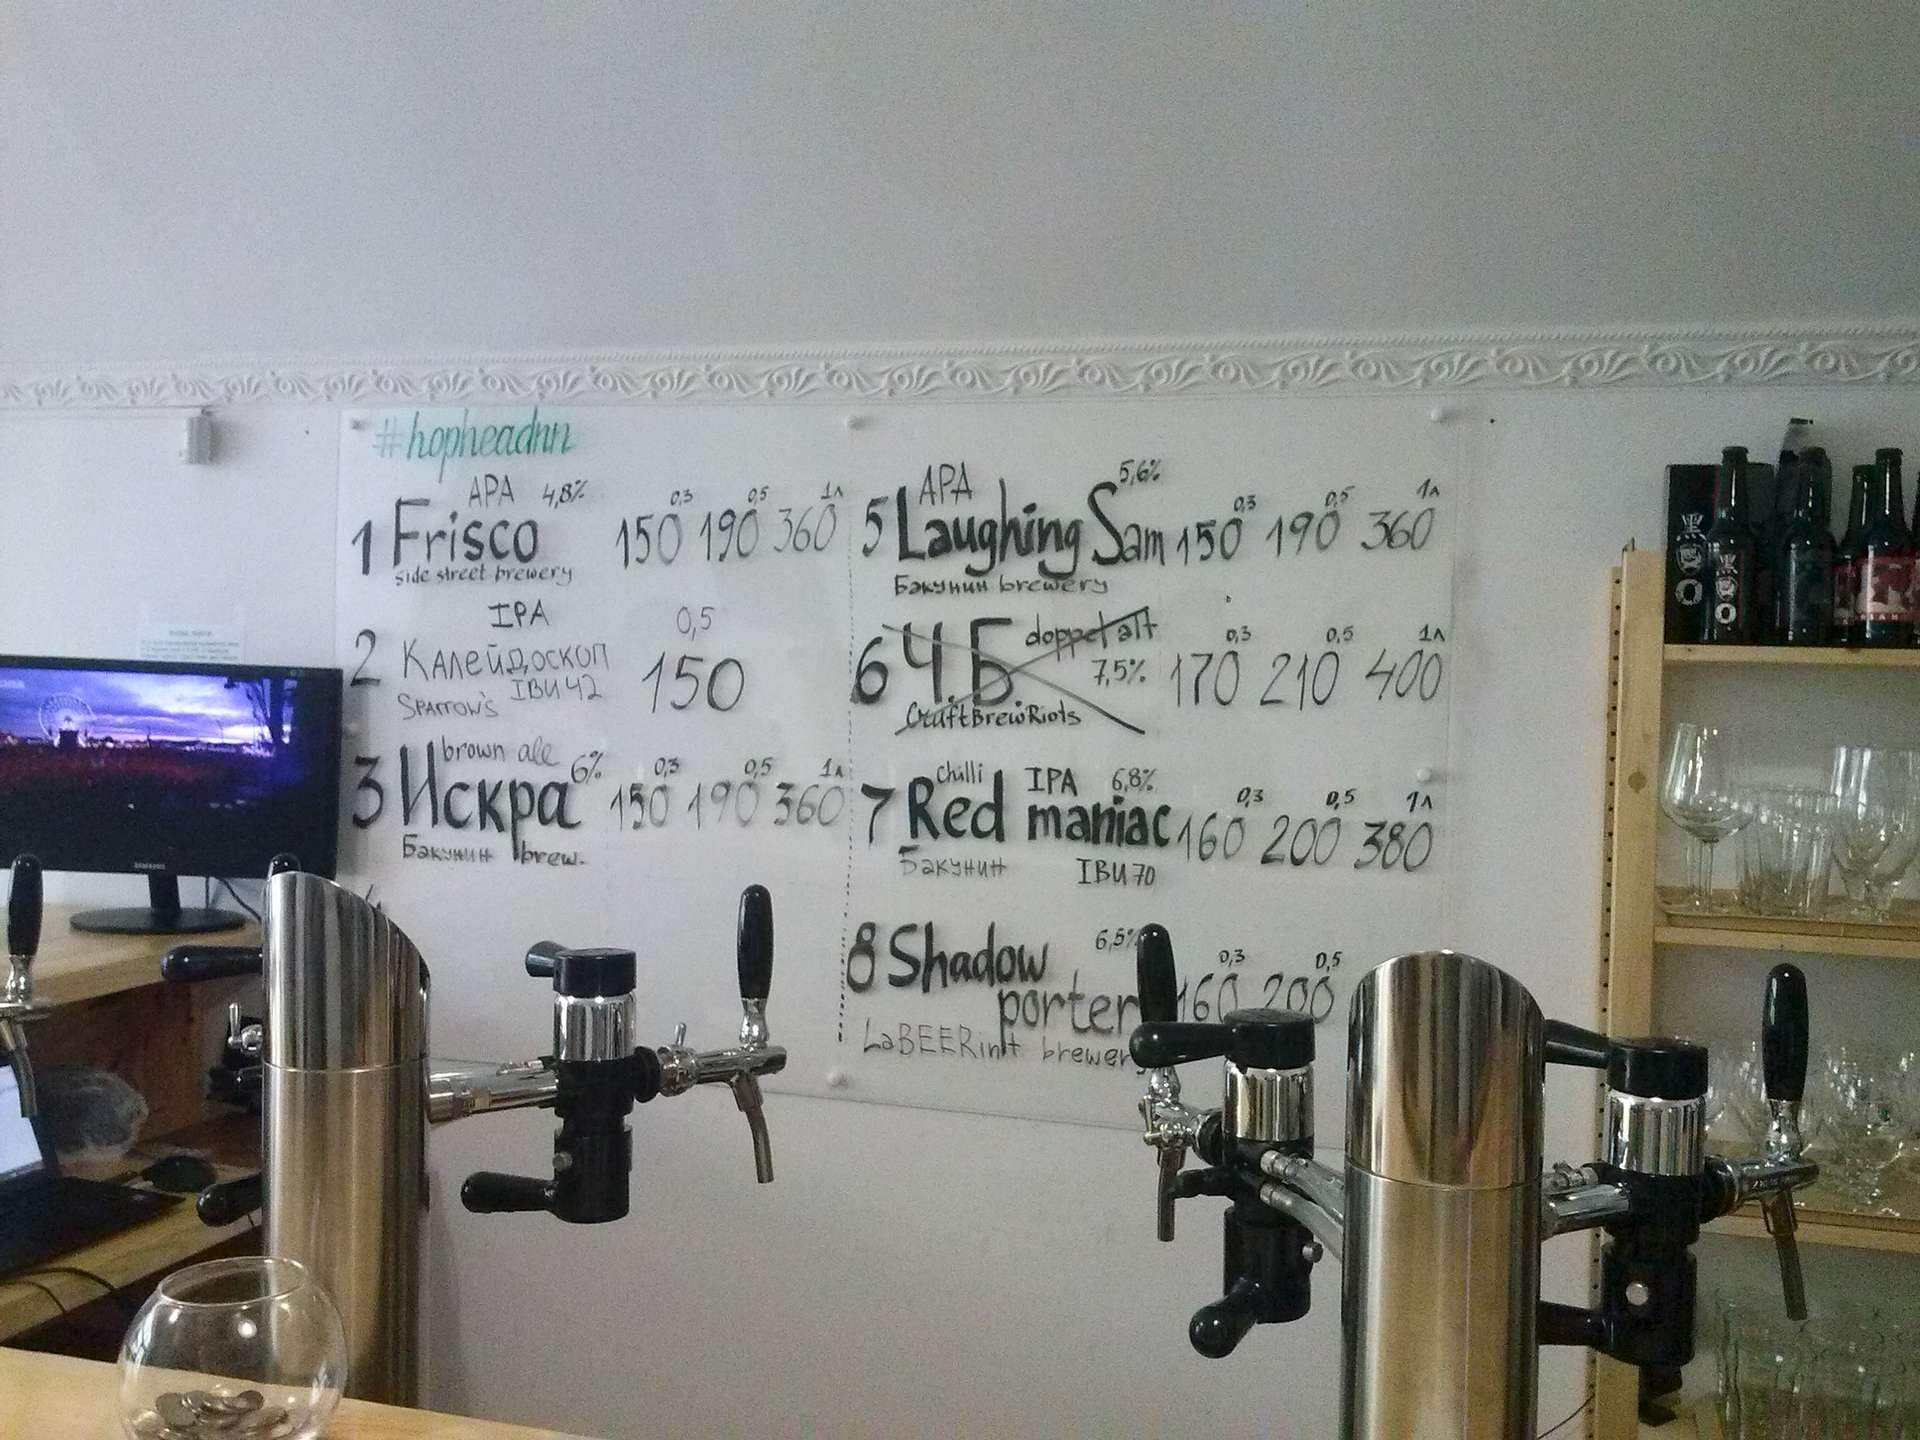 #hopheadnn
APA 4,8%
1 Frisco
side street brewery
0,3 0,5 1л
150 190 360
IPA
2 Калейдоскоп
IBU 42
Sparrow's
0,5
150
brown ale
3 Искра 6%
Бакунин brew.
0,3 0,5 1л
150 190 360
APA 5,6%
5 Laughing Sam
Бакунин brewery
0,3 0,5 1л
150 190 360
6 Ч.Б doppel alt
7,5%
CraftBrewRiots
0,3 0,5 1л
170 210 400
chilli IPA 6,8%
7 Red maniac
Бакунин IBU 70
0,3 0,5 1л
160 200 380
8 Shadow 6,5%
porter
LaBEERint brewery
0,3 0,5
160 200
SAMSUNG